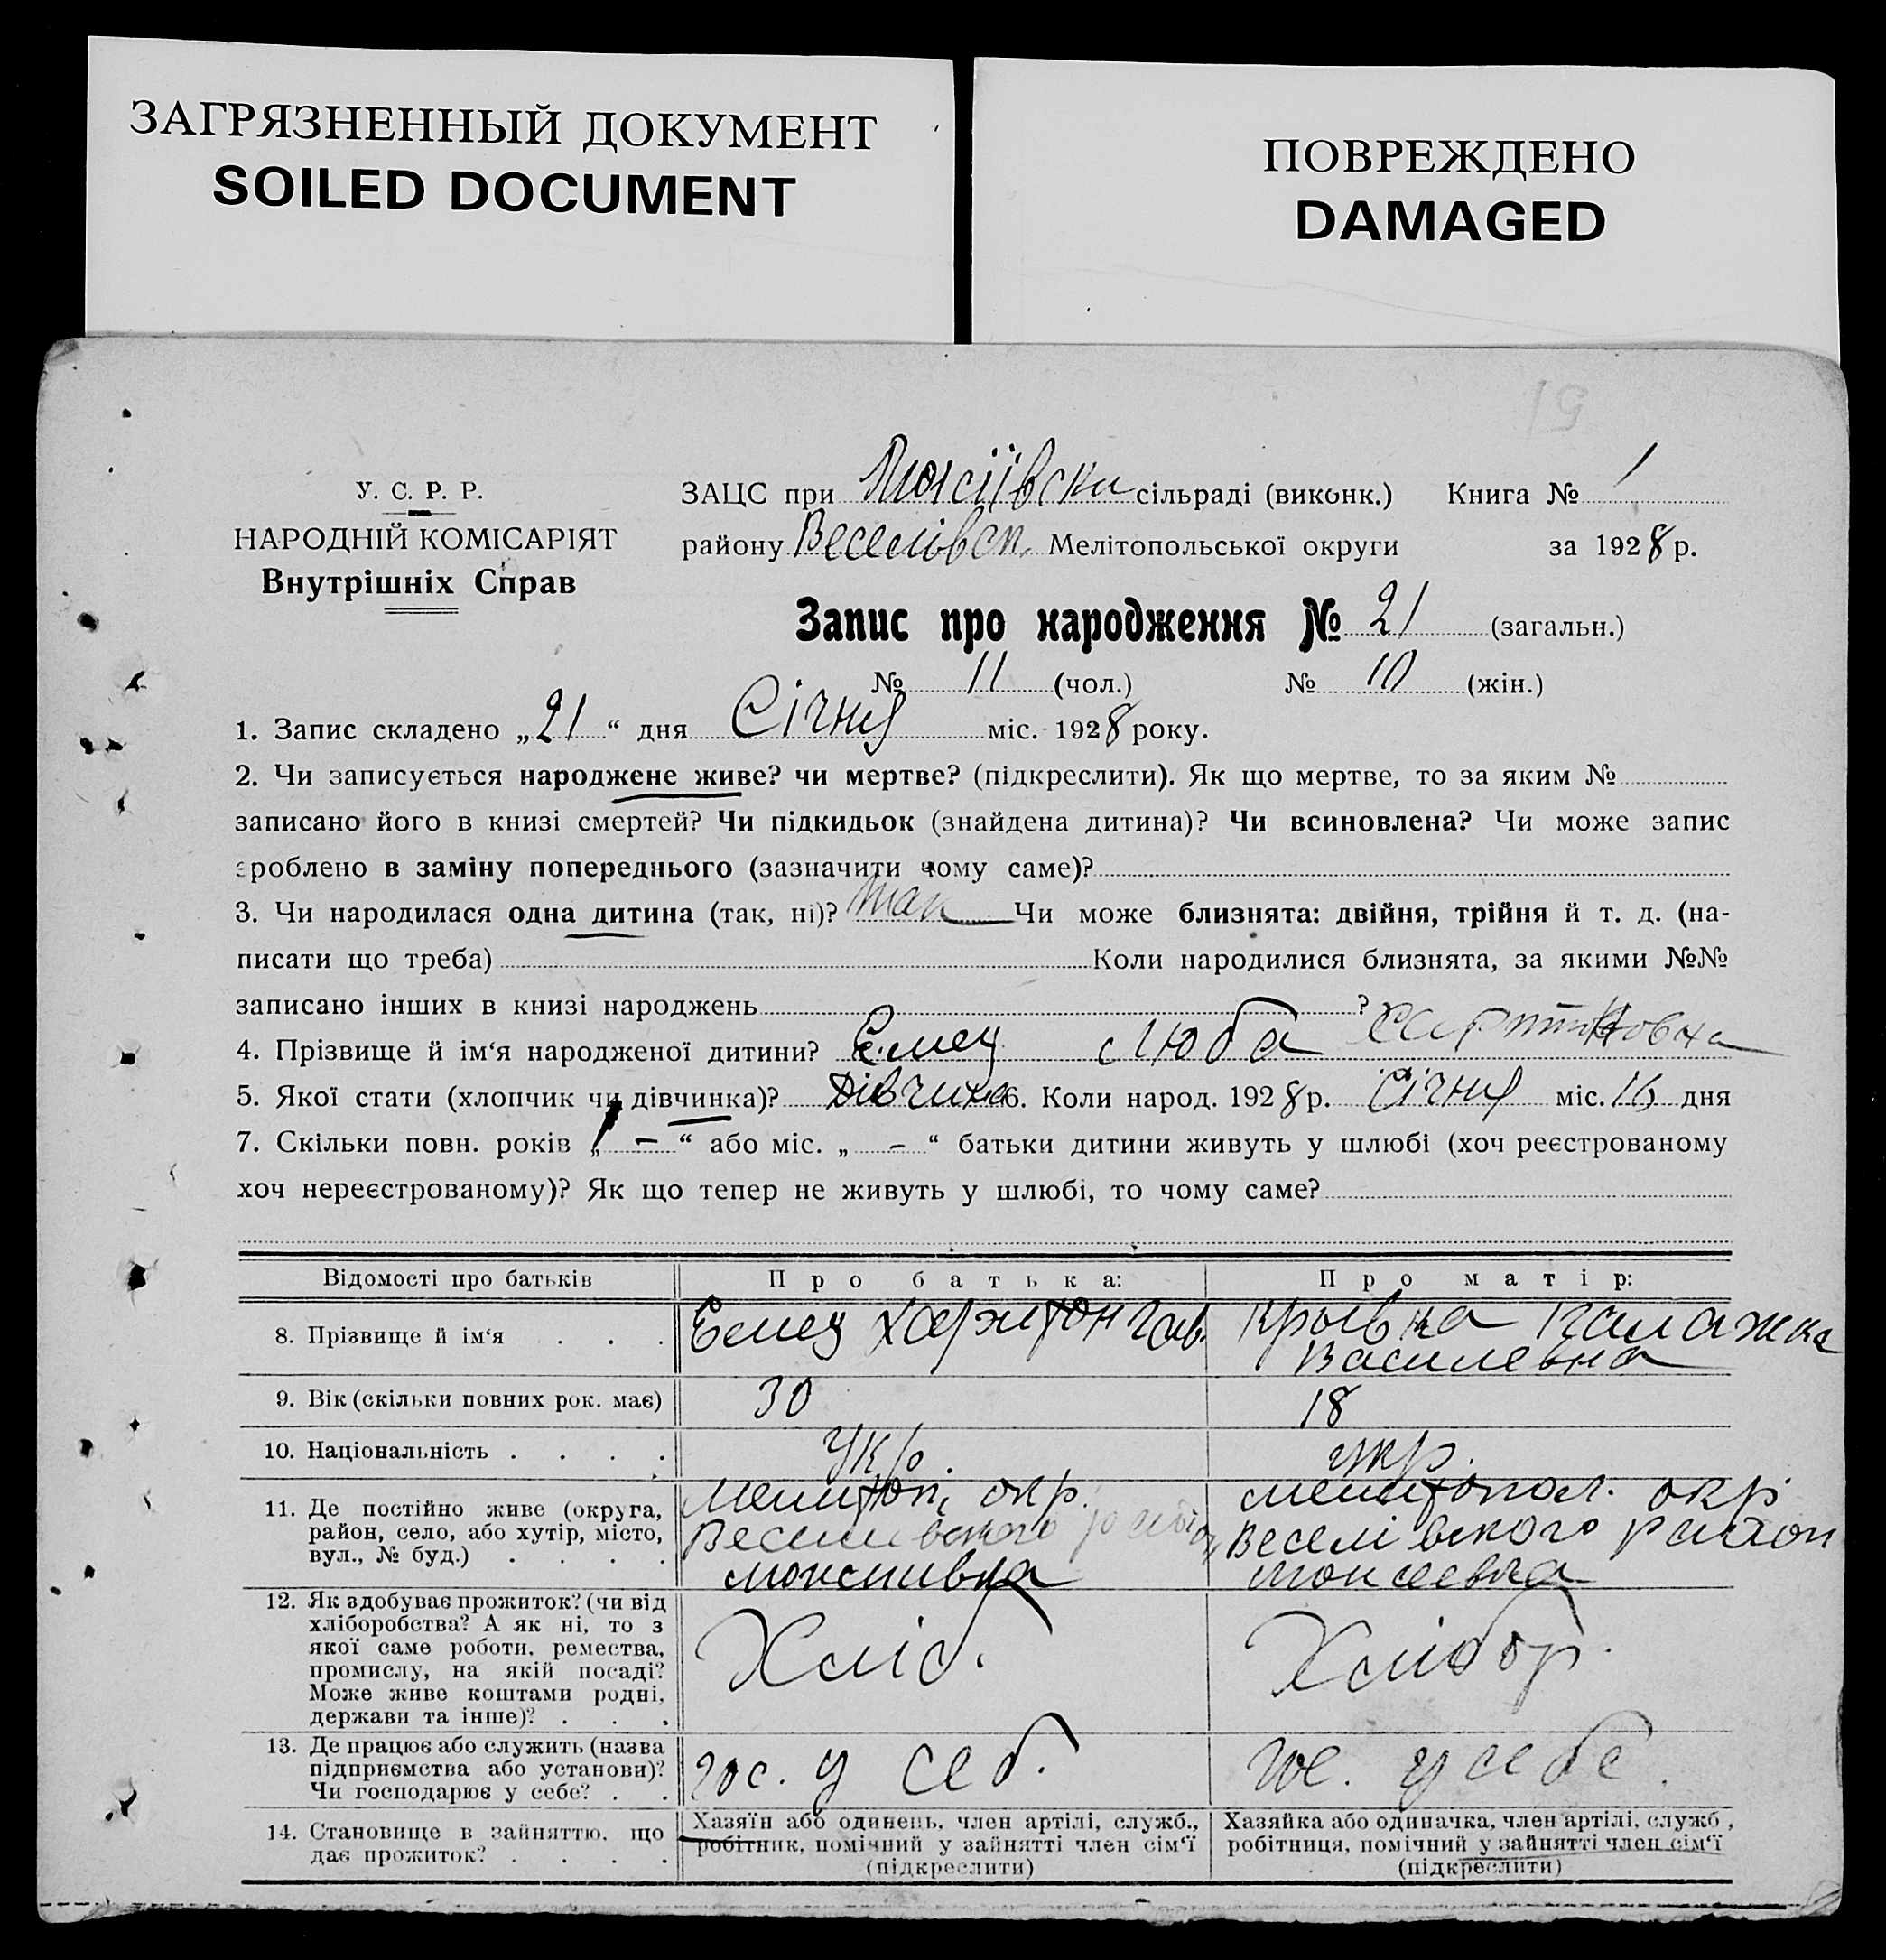 ЗАГРЯЗНЕННЫЙ ДОКУМЕНТ
SOILED DOCUMENT
ПОВРЕЖДЕНО
DAMAGED
У. С. Р. Р.
НАРОДНІЙ КОМІСАРІЯТ
Внутрішніх Справ
ЗАЦС при сільраді (виконк.) Книга № 1
району Веселівськ. Мелітопольської округи за 1928 р.
Запис про народження № 21 (загальн.)
№ 11 (чол.) № 10 (жін.)
1. Запис складено „21“ дня Січня міс. 1928 року.
2. Чи записується народжене живе? чи мертве? (підкреслити). Як що мертве, то за яким №
записано його в книзі смертей? Чи підкидьок (знайдена дитина)? Чи всиновлена? Чи може запис
зроблено в заміну попереднього (зазначити чому саме)?
3. Чи народилася одна дитина (так, ні)? Так Чи може близнята: двійня, трійня й т. д. (на-
писати що треба) Коли народилися близнята, за якими №№
записано інших в книзі народжень ?
4. Прізвище й ім‘я народженої дитини? Емец Люба
5. Якої стати (хлопчик чи дівчинка)? Дівчина 6. Коли народ. 1928 р. Січня міс. 16 дня
7. Скільки повн. років „ — “ або міс. „ — “ батьки дитини живуть у шлюбі (хоч реєстрованому
хоч нереєстрованому)? Як що тепер не живуть у шлюбі, то чому саме?
Відомості про батьків Про батька: Про матір:
8. Прізвище й ім‘я . . . Емец Харитон Гав. Крывка
Василевна
9. Вік (скільки повних рок. має) 30 18
10. Національність . . . . Укр. укр.
11. Де постійно живе (округа, Мелитоп. окр. мелитопол. окр
район, село, або хутір, місто, Веселівского Веселівского район
вул., № буд.) . . . . моисеивка моисеевка
12. Як здобуває прожиток? (чи від
хліборобства? А як ні, то з
якої саме роботи, ремества, Хліб. Хлібор.
промислу, на якій посаді?
Може живе коштами родні,
держави та інше)? . . .
13. Де працює або служить (назва
підприємства або установи)? гос. у себ. гос. у себе.
Чи господарює у себе? . .
14. Становище в зайняттю, що Хазяїн або одинець, член артілі, служб., Хазяйка або одиначка, член артілі, служб.,
дає прожиток? . . . . робітник, помічний у зайнятті член сім‘ї робітниця, помічний у зайнятті член сім‘ї
(підкреслити) (підкреслити)